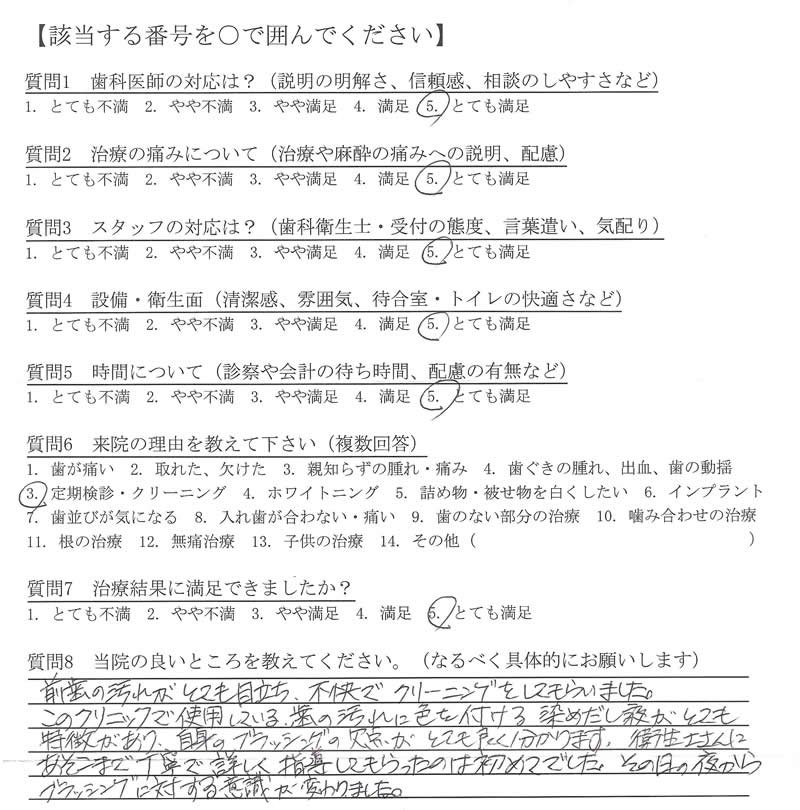 【該当する番号を○で囲んでください】
質問1 歯科医師の対応は？（説明の明解さ、信頼感、相談のしやすさなど）
1. とても不満 2. やや不満 3. やや満足 4. 満足 5. とても満足
質問2 治療の痛みについて（治療や麻酔の痛みへの説明、配慮）
1. とても不満 2. やや不満 3. やや満足 4. 満足 5. とても満足
質問3 スタッフの対応は？（歯科衛生士・受付の態度、言葉遣い、気配り）
1. とても不満 2. やや不満 3. やや満足 4. 満足 5. とても満足
質問4 設備・衛生面（清潔感、雰囲気、待合室・トイレの快適さなど）
1. とても不満 2. やや不満 3. やや満足 4. 満足 5. とても満足
質問5 時間について（診察や会計の待ち時間、配慮の有無など）
1. とても不満 2. やや不満 3. やや満足 4. 満足 5. とても満足
質問6 来院の理由を教えて下さい（複数回答）
1. 歯が痛い 2. 取れた、欠けた 3. 親知らずの腫れ・痛み 4. 歯ぐきの腫れ、出血、歯の動揺
3. 定期検診・クリーニング 4. ホワイトニング 5. 詰め物・被せ物を白くしたい 6. インプラント
7. 歯並びが気になる 8. 入れ歯が合わない・痛い 9. 歯のない部分の治療 10. 噛み合わせの治療
11. 根の治療 12. 無痛治療 13. 子供の治療 14. その他（ ）
質問7 治療結果に満足できましたか？
1. とても不満 2. やや不満 3. やや満足 4. 満足 5. とても満足
質問8 当院の良いところを教えてください。（なるべく具体的にお願いします）
前歯の汚れがとても目立ち、不快でクリーニングをしてもらいました。
このクリニックで使用している、歯の汚れに色を付ける染めだし液がとても
特徴があり、自身のブラッシングの欠点がとても良く分かります。衛生士さんに
あそこまで丁寧で詳しく指導してもらったのは初めてでした。その日の夜から
ブラッシングに対する意識が変わりました。